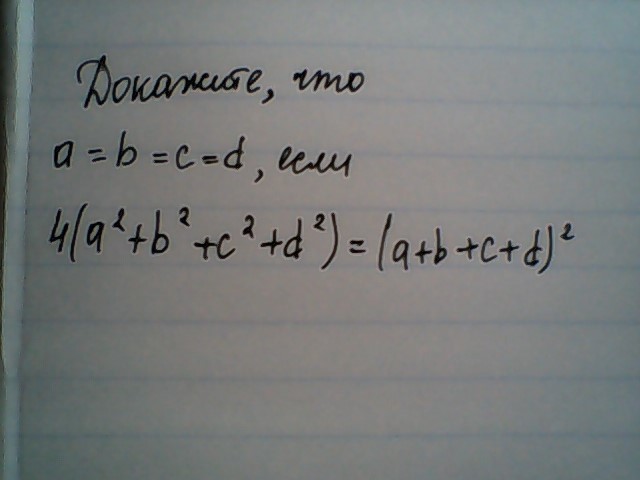 Докажите, что
a = b = c = d, если
4(a² + b² + c² + d²) = (a + b + c + d)²